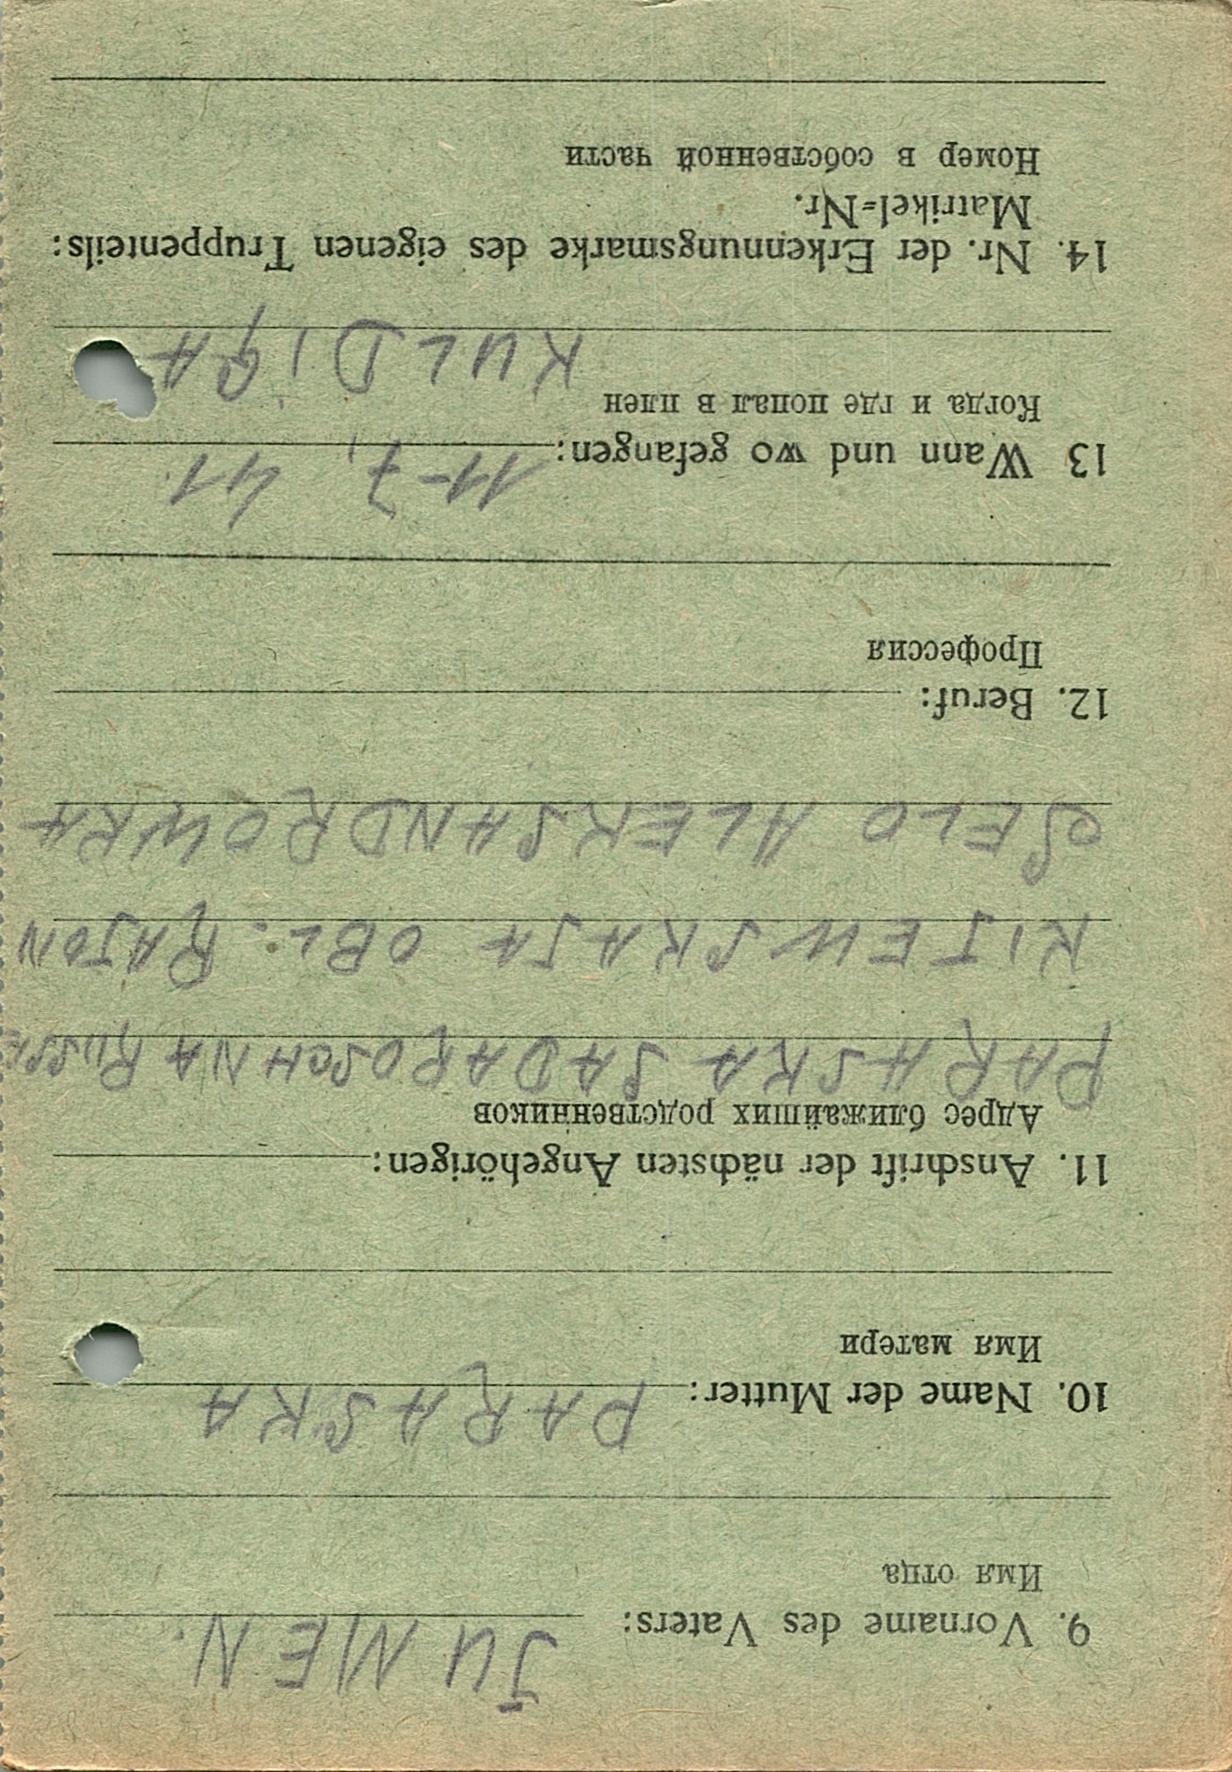 9. Vorname des Vaters: JUMEN.
Имя отца
10. Name der Mutter: PARASKA
Имя матери
11. Anschrift der nächsten Angehörigen:
Адрес ближайших родственников
PARASKA SADAROSCHNA
KIJEWSKAJA OBL. RAJON
SELO ALEKSANDROWKA
12. Beruf:
Профессия
13 Wann und wo gefangen: 11-7, 41.
Когда и где попал в плен
KULDIGA
14. Nr. der Erkennungsmarke des eigenen Truppenteils:
Matrikel=Nr.
Номер в собственной части